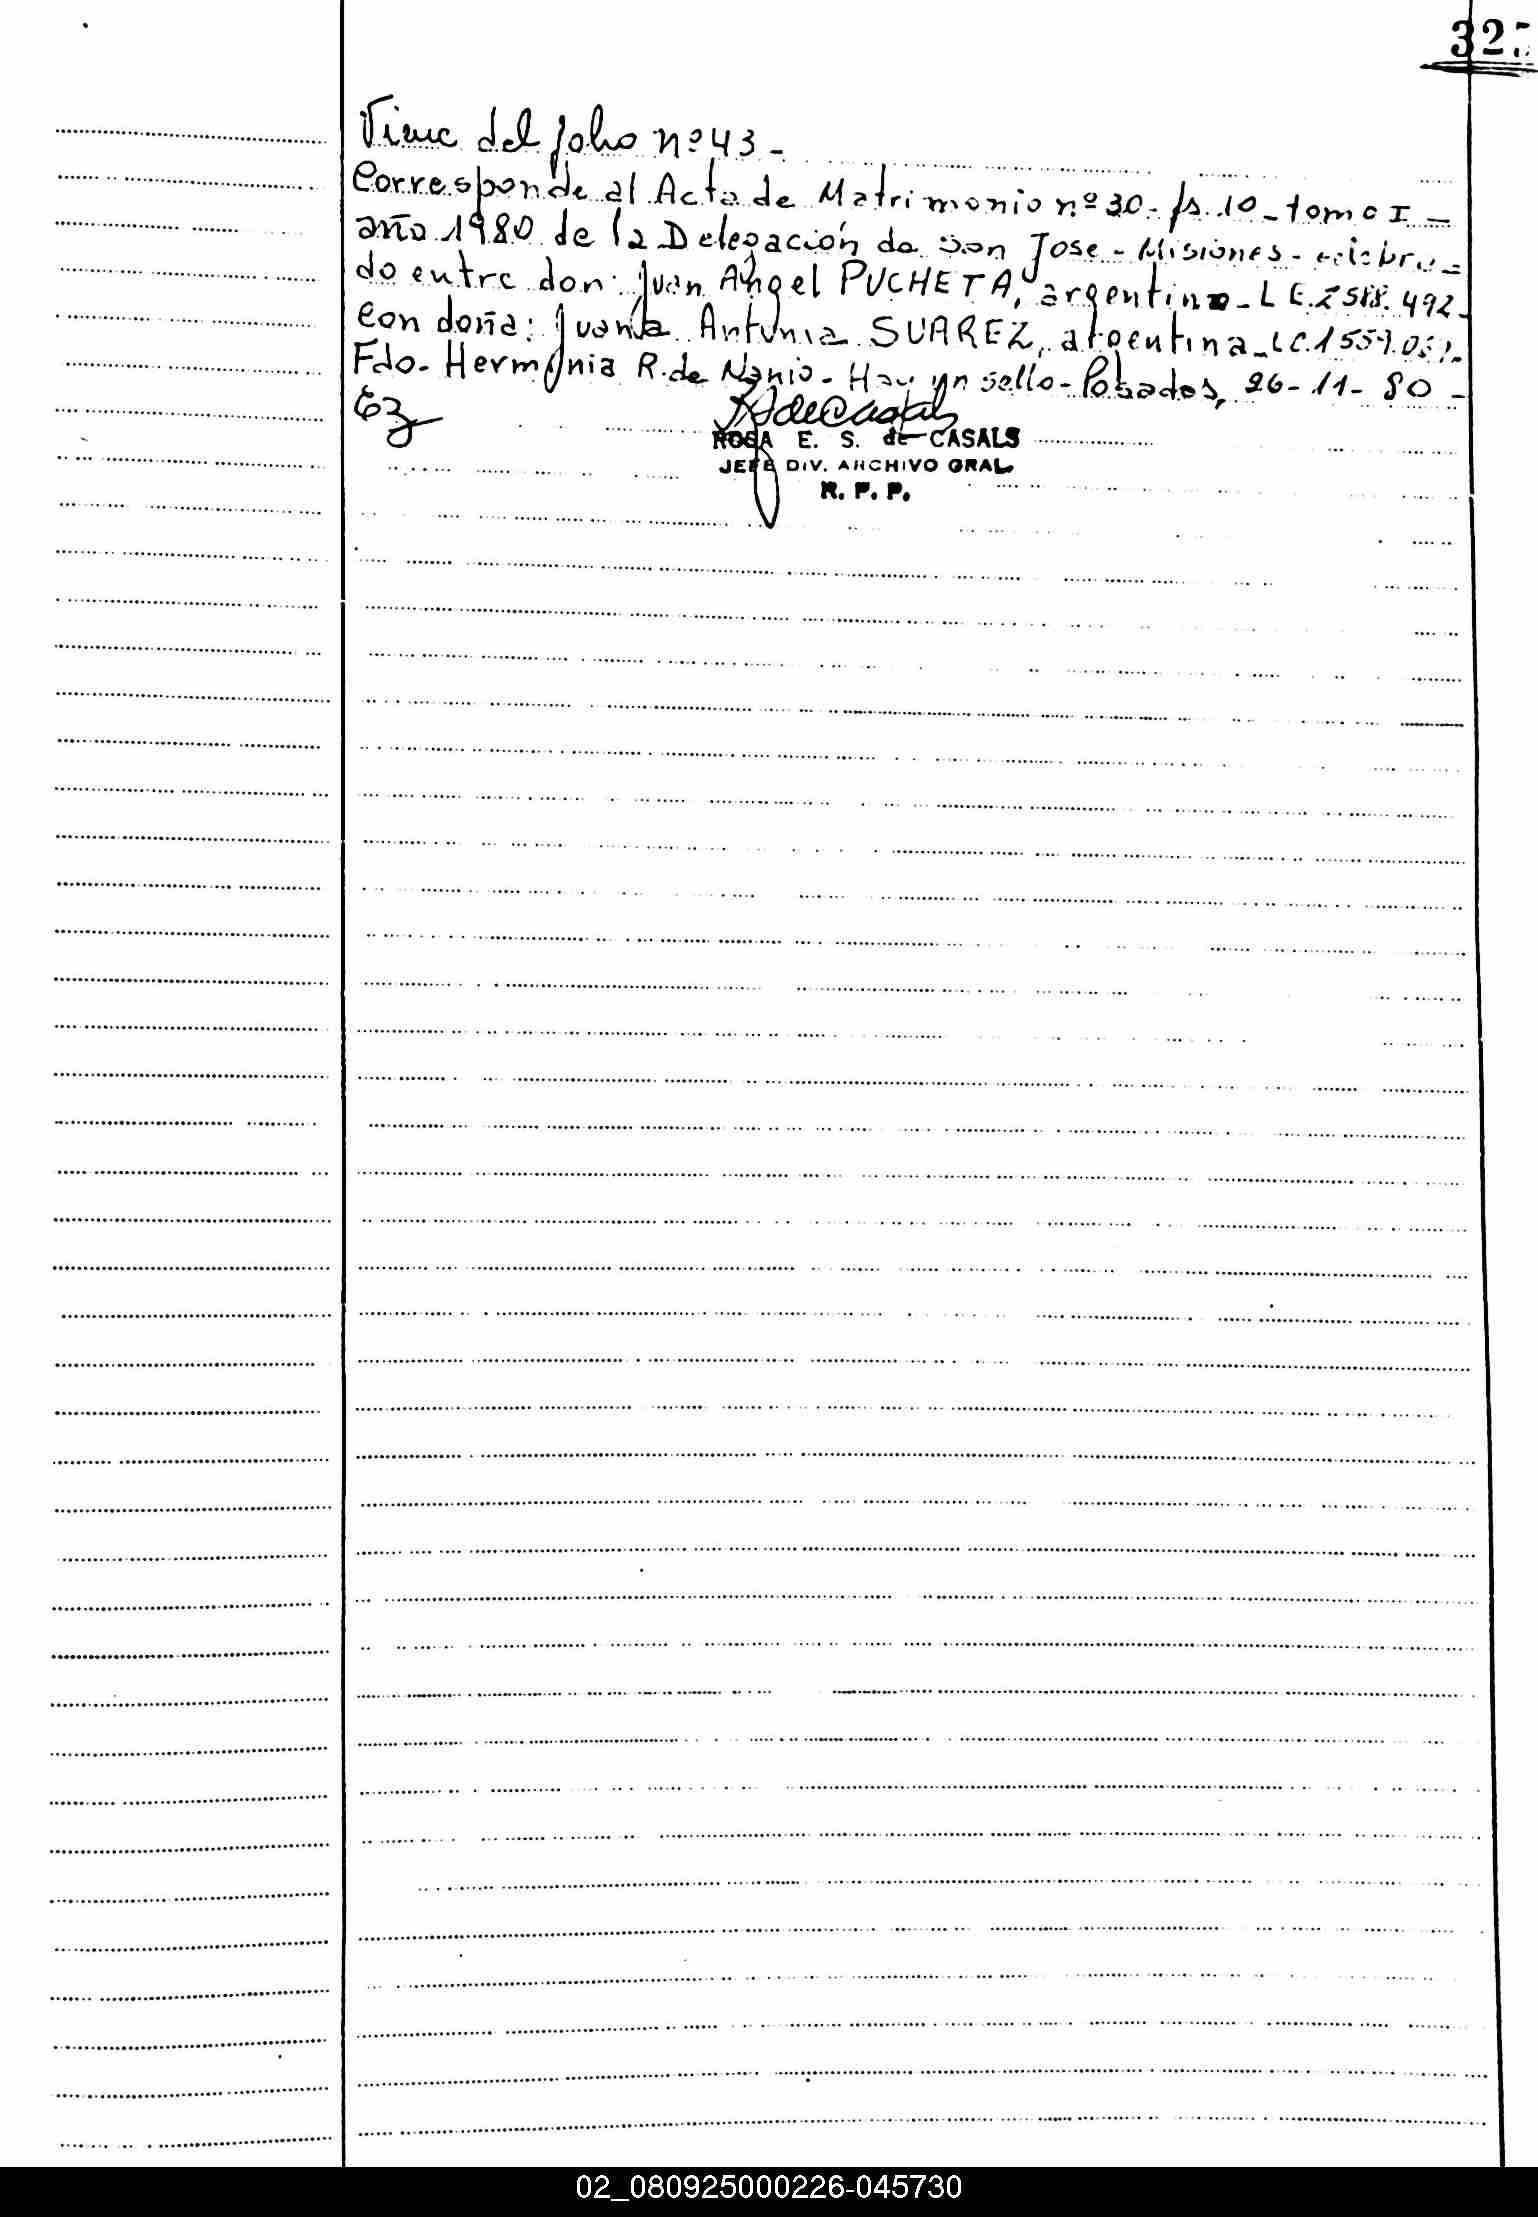 32
Viene del folio nº 43 -
Corresponde al Acta de Matrimonio nº 30 - fs. 10 - tomo I -
año 1980 de la Delegación de San Jose - Misiones - celebra -
do entre don: Juan Angel PUCHETA, argentino - L E. 2588. 492 -
Con doña: Juana Antonia SUAREZ, argentina - LC. 1 557.
Fdo - Herminia R. de - Hay un sello - Posadas, 26 - 11 - 80 -
ROSA E. S. de CASALS
JEFE DIV. ARCHIVO GRAL
R. P. P.
02_080925000226-045730